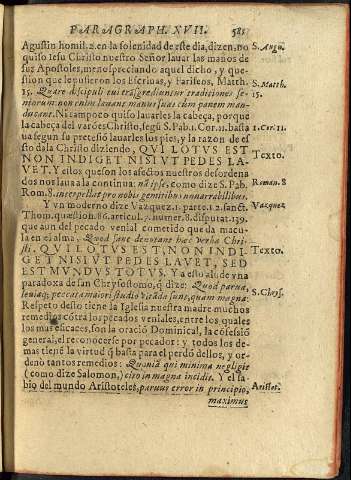 PARAGRAPH. XVII. 581
Agustin homil. 2. en la solenidad de este dia, dizen, no S. Augu.
quiso Iesu Christo nuestro Señor lauar las manos de
sus Apostoles, menospreciando aquel dicho, y que-
stion que le pusieron los Escriuas, y Fariseos, Matth. S. Matth.
15. Quare discipuli tui trāsgrediuntur traditiones se- 15.
niorum: non enim lauant manus suas cùm panem man-
ducant. Ni tampoco quiso lauarles la cabeça, porque
la cabeça del varō es Christo, segū S. Pab. 1. Cor. 11. basta 1. Cor. 11.
ua segun su pretensiō lauarles los pies, y la razon de es
to da la Christo diziendo, QUI LOTUS EST
NON INDIGET NISI VT PEDES LA- Texto.
VET. Y ellos que son los afectos nuestros desordena
dos nos laua a la continua: nā ipse, como dize S. Pab.
Rom. 8. interpellat pro nobis gemitibus inenarrabilibus. Roman. 8
Y vn moderno dize Vazquez 1. parte. 1. 2. sanct. Vazquez
Thom. quæstioh. 86. articul. 2. numer. 8. disputat. 139.
que aun del pecado venial cometido queda macu-
la en el alma, Quod sane denotans hæc verba Chri-
sti. QVI LOTVS EST, NON INDI- Texto.
GET NISI VT PEDES LAVET, SED
EST MVNDVS TOTVS. Ya esto alude vna
paradoxa de san Chrysostomo, q̃ dize: Quod parua,
leuiaq; peccata maiori studio vitāda sunt, quam magna. S. Chrys.
Respeto desto tiene la Iglesia nuestra madre muchos
remedios cōtra los pecados veniales, entre los quales
los mas eficaces, son la oració Dominical, la cōfessió
general, el reconocerse por pecador: y todos los de-
mas tienē la virtud q̃ basta para el perdō dellos, y or-
denò tantos remedios: Quoniā qui minima negligit
(como dize Salomon,) citò in magna incidit. Y el sa-
bio del mundo Aristoteles, paruus error in principio, Aristot.
maximus